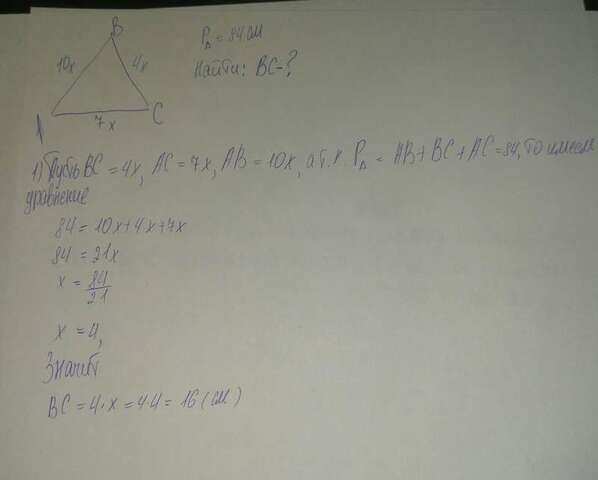 B
P△ = 84 см
10x
4x
Найти: BC-?
C
7x
1) Пусть BC = 4x, AC = 7x, AB = 10x, а т.к. P△ = AB + BC + AC = 84, то имеем
уравнение
84 = 10x+4x+7x
84 = 21x
x = 84/21
x = 4,
Значит
BC = 4·x = 4·4 = 16 (см)